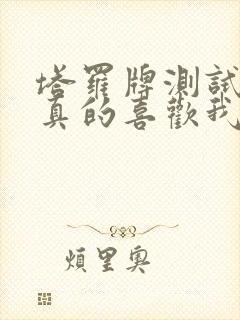 塔羅牌測試
真的喜歡我
煩里奧